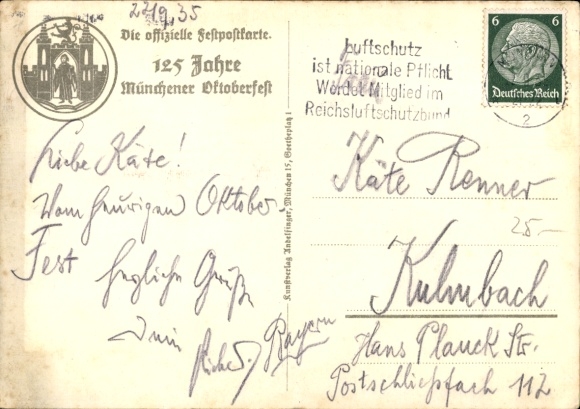 22/9 35
Die offizielle Festpostkarte.
125 Jahre
Münchener Oktoberfest
Liebe Käte!
Vom heurigen Oktober-
Fest herzliche Grüße
Dein
Bayern
Kunstverlag Andelfinger, München 15, Goetheplatz 1
Luftschutz
ist nationale Pflicht
Werdet Mitglied im
Reichsluftschutzbund
6 6
Deutsches Reich
2
Käte Renner
25.–
Kulmbach
Hans Planck Str.
Postschließfach 112